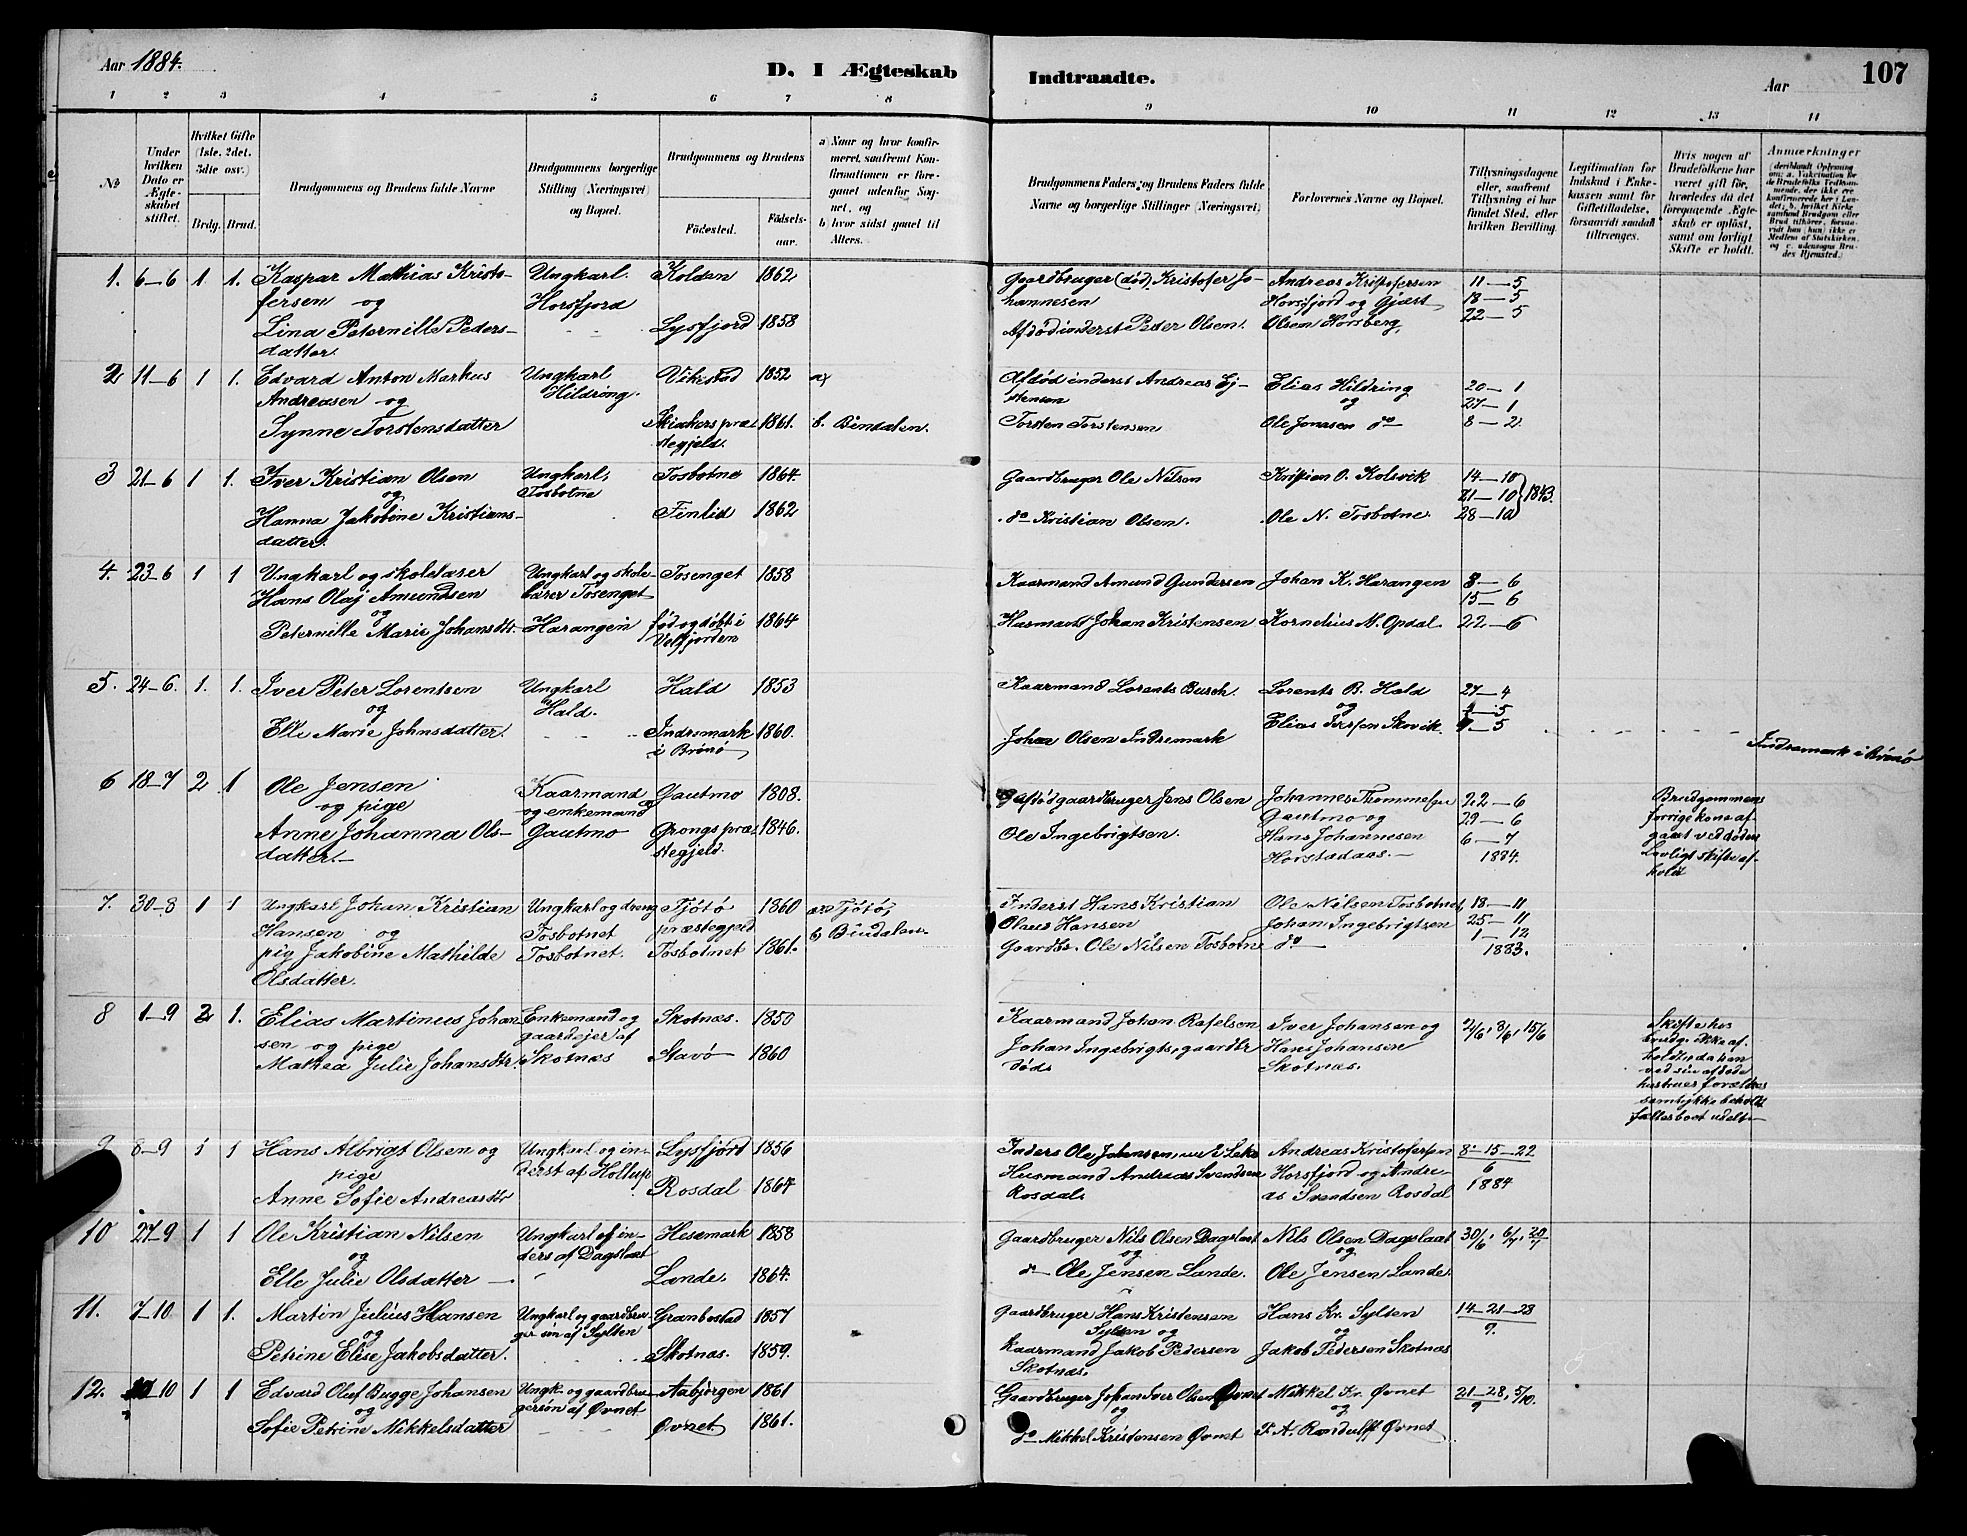 Aar 1884.
D. I Ægteskab Indtraadte.
Aar
107
1 2 3 4 5 6 7 8 9 10 11 12 13 14
№
Under hvilken Dato er Ægteskabet stiftet.
Hvilket Gifte (1ste, 2det, 3dte osv.)
Brdg. Brud.
Brudgommens og Brudens fulde Navne
Brudgommens borgerlige Stilling (Næringsvei) og Bopæl.
Brudgommens og Brudens
Fødested. Fødselsaar.
a) Naar og hvor konfirmeret, saafremt Konfirmationen er foregaaet udenfor Sognet, og
b) hvor sidst gaaet til Alters.
Brudgommens Faders, og Brudens Faders fulde Navne og borgerlige Stillinger (Næringsvei).
Forlovernes Navne og Bopæl.
Tillysningsdagene eller, saafremt Tillysning ei har fundet Sted, efter hvilken Bevilling.
Legitimation for Indskud i Enkekassen samt for Giftetilladelse, forsaavidt saadan tiltrænges.
Hvis nogen af Brudefolkene har været gift før, hvorledes da det foregaaende Ægteskab er opløst, samt om lovligt Skifte er holdt.
Anmærkninger
1. 6-6 1 1. Kaspar Mathias Kristo- Ungkarl. Kolden 1862 Gaardbruger (død) Kristofer Jo- Andreas Kristofersen 11-5
fersen og Horsfjord hannesen Horsfjord og Gjæst 18-5
Lina Peternille Peders- Lysfjord 1858 Afdød inderst Peder Olsen. Olsen Horsberg, 22-5
datter.
2 11-6 1 1. Edvard Anton Markus Ungkarl Vikstad 1852 a) Afdød inderst Andreas Ej- Elias Hildring 20-1
Andreasen og Hildring. stensen og 27-1
Synne Torstensdatter Skiakers præ- 1861. b. Bindalen. Torsten Torstensen Ole Jonasen do 8-2
stegjeld.
3 21-6 1 1. Iver Kristian Olsen Ungkarl, Tosbotne 1864. Gaardbruger Ole Nilsen Kristian O. Kolsvik 14-10
og Tosbotne 21-10 1843.
Hanna Jakobine Kristians- Tinlid 1862 do Kristian Olsen. Ole N. Tosbotne. 28-10
datter.
4. 23-6 1 1 Ungkarl og skolelærer Ungkarl og skole- Tosenget 1858 Kaarmand Amund Gundersen Johan K. Harangen 8-6
Hans Olaj Amundsen lærer Tosenget 15-6
og
Peternille Marie Johansdtr. Harangen fød og døbt i 1864 Husmand Johan Kristensen Kornelius M. Opdal. 22-6
Velfjorden
5. 24-6. 1. 1. Iver Peter Lorentsen Ungkarl Hald 1853 Kaarmand Lorents Busch. Lorents B. Hald 27-4
og Hald. og 4-5
Elle Marie Johnsdatter. Indremark 1860. Johan Olsen Indremark Elias Skovik 9-5
i Brønø Indremark i Brønø
6 18-7 2 1 Ole Jensen Kaarmand Gautmo 1808. Afdød gaardbruger Jens Olsen Johannes Thommesen 22-6 Brudgommens
og pige og enkemand Gautmo og 29-6 forrige kone af-
Anne Johanna Ols- Gautmo Grongs præ- 1846. Ole Ingebrigtsen. Hans Johannesen 6-7 gaaet ved døden
datter. stegjeld. Horstadaas. 1884. Lovligt skifte af-
hold
7. 30-8 1 1 Ungkarl Johan Kristian Ungkarl og dreng Tjøtø 1860 a) Tjøtø, Inderst Hans Kristian Ole Nilsen Tosbotnet 18-11
Hansen og Tosbotnet præstegjeld b) Bindalen. Olaus Hansen Johan Ingebrigtsen 25-11
pig Jakobine Mathilde Tosbotnet. Tosbotnet 1861. Gaardbr. Ole Nilsen Tosbotne do 1-12
Olsdatter. 1883.
8 1-9 2 1. Elias Martinus Johan Enkemand og Skotnæs. 1850 Kaarmand Johan Rafelsen Iver Johansen og 2/6, 8/6, 15/6 Skifte hos
sen og pige gaardejer af Johan Ingebrigts, gaardbr Hans Johansen brudg. ikke af-
Mathea Julie Johansdtr. Skotnæs Stavø 1860 død. Skotnæs. holdt, da han
ved sin afdøde
hustrues forældres
samtykke beholdt
fællesboet udelt
9 8-9 1 1 Hans Albrigt Olsen og Ungkarl og in- Lysfjord 1856 Inders Ole Johansen, Andreas Kristofersen 8-15-22
pige derst af Hollup Husmand Andreas Svendsen Horsfjord og Andre- 6
Anne Sofie Andreasdtr Rosdal 1864 Rosdal. as Svendsen Rosdal 1884
10 27-9 1 1 Ole Kristian Nilsen Ungkarl af in- Hesemark 1858 Gaardbruger Nils Olsen Dagslaat Nils Olsen Dagslaat 30/6, 6/7, 20/7
og ders af Dagslaat og og
Elle Julie Olsdatter Lande. 1864. do Ole Jensen Lande. Ole Jensen Lande.
11. 7-10 1 1. Martin Julius Hansen Ungkarl og gaardbru- Granbostad 1857 Gaardbruger Hans Kristensen Hans Kr. Sylten 14-21-28
og ger søn af Sylten Sylten og og 9.
Petrine Elise Jakobsdatter. Skotnæs. 1859. Kaarmand Jakob Pedersen Jakob Pedersen Skotnæs
Skotnæs.
12. 10-10 1 1 Edvard Oluf Bugge Johansen Ungk. og gaardbru- Aabjørgen 1861 Gaardbruger Johan Iver Olsen Øvnet Mikkel Kr. Øvnet 21-28, 5/10.
og gersøn af Øvnet og og 9
Sofie Petrine Mikkelsdatter Øvnet. 1861. do Mikkel Kristensen Øvnet P. A. Randulff Øvnet